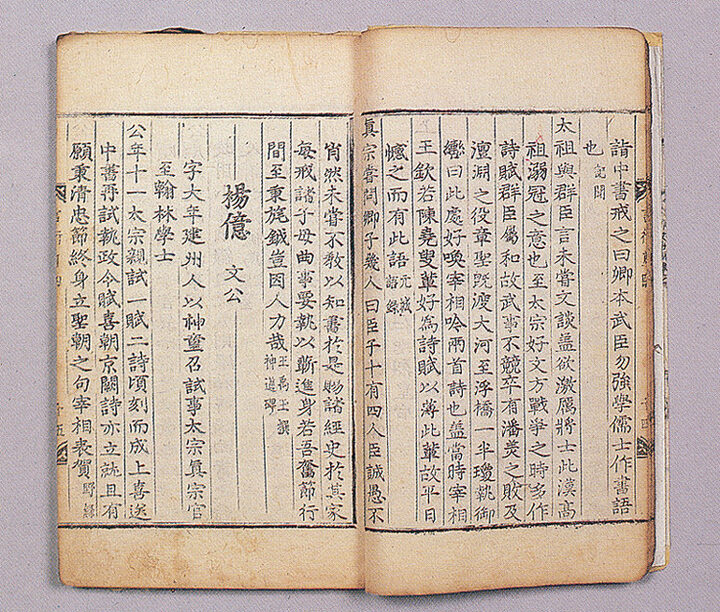 詣中書戒之曰卿本武臣勿強學儒士作書語
也 記聞
太祖與群臣言未嘗文談盖欲激厲將士此漢高
祖溺冠之意也至太宗好文方戰爭之時多作
詩賦群臣屬和故武事不競卒有潘美之敗及
澶淵之役章聖旣渡大河至浮橋一半瓊執御
轡曰此處好喚宰相吟兩首詩也盖當時宰相
王欽若陳堯叟輩好爲詩賦以薄此輩故平日
憾之而有此語 元城語錄
眞宗嘗問卿子幾人曰臣子十有四人臣誠愚不
肖然未嘗不敎以知書於是賜諸經史於其家
每戒諸子毋曲事要執以蘄進身若吾奮節行
間至秉旄鉞豈因人力哉 王禹玉撰神道碑
楊億 文公
字大年建州人以神童召試事太宗眞宗官
至翰林學士
公年十一太宗親試一賦二詩頃刻而成上喜送
中書再試執政令賦喜朝京闕詩亦立就且有
願秉清忠節終身立聖朝之句宰相表賀 野錄